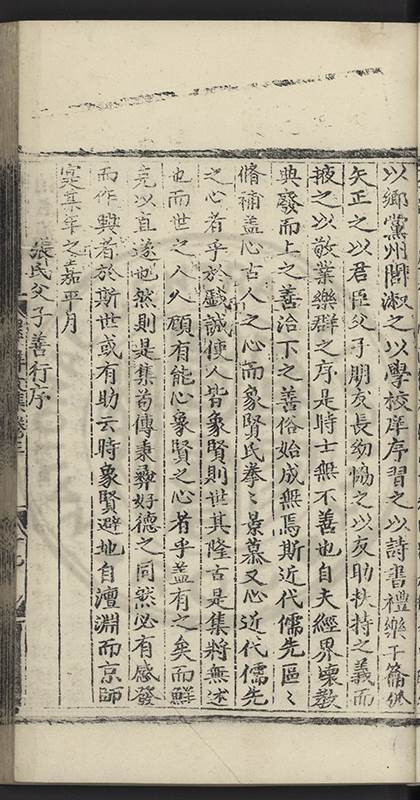 以鄉黨州閭淑之以學校庠序習之以詩書禮樂干籥俶
矢正之以君臣父子朋友長幼恊之以友助扶持之義而
掖之以敬業樂群之序是時士無不善也自夫經界壊教
典廢而上之善治下之善俗始成無焉斯近代儒先區〻
脩補盖心古人之心而象賢氏拳〻景慕又心近代儒先
之心者乎於戱誠使人皆象賢則世其隆古是集將無述
也而世之人人顧有能心象賢之心者乎盖有之矣而鮮
克以直遂也然則是集苟傳秉彞好德之同然必有感發
而作興者於斯世或有助云時象賢避地自澶淵而京師
寔某年之嘉平月
張氏父子善行序